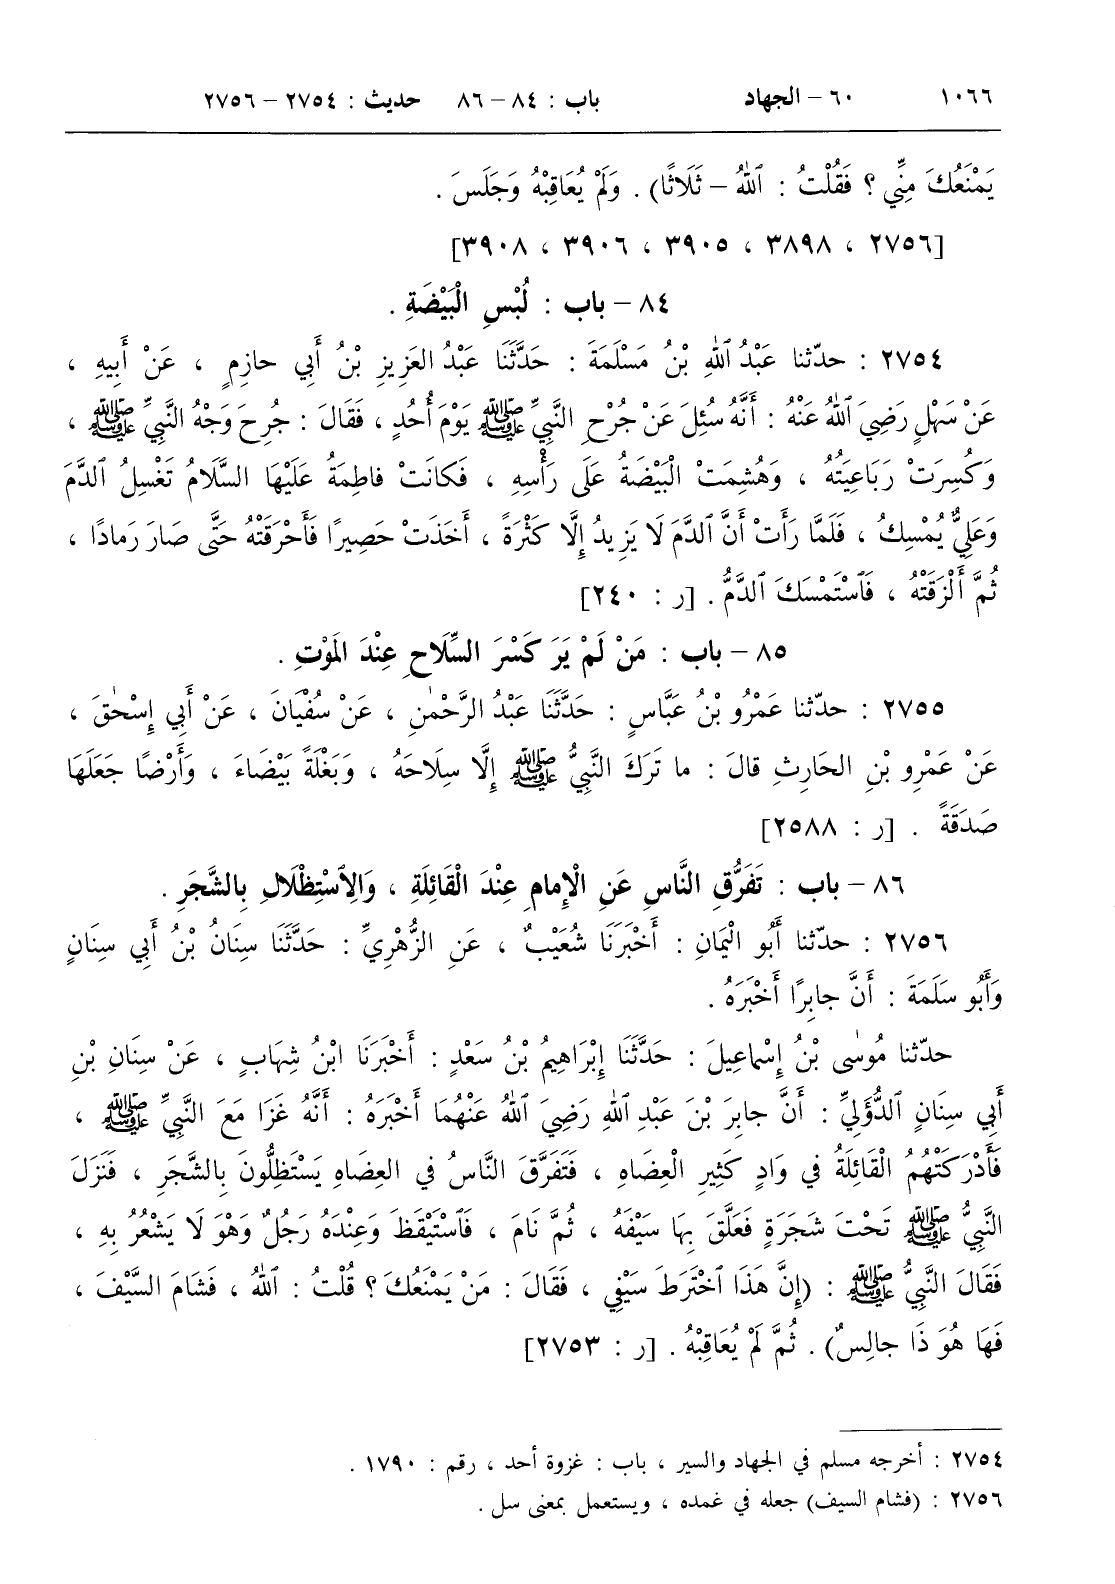 ١٠٦٦ ٦٠ – الجهاد باب : ٨٤ – ٨٦ حديث : ٢٧٥٤ – ٢٧٥٦
يَمْنَعُكَ مِنِّي ؟ فَقُلْتُ : ٱللهُ – ثَلَاثًا) . وَلَمْ يُعَاقِبْهُ وَجَلَسَ .
[٢٧٥٦ ، ٣٨٩٨ ، ٣٩٠٥ ، ٣٩٠٦ ، ٣٩٠٨]
٨٤ – باب : لُبْسِ الْبَيْضَةِ .
٢٧٥٤ : حدّثنا عَبْدُ ٱللهِ بْنُ مَسْلَمَةَ : حَدَّثَنَا عَبْدُ العَزِيزِ بْنُ أَبِي حازِمٍ ، عَنْ أَبِيهِ ،
عَنْ سَهْلٍ رَضِيَ ٱللهُ عَنْهُ : أَنَّهُ سُئِلَ عَنْ جُرْحِ النَّبِيِّ ﷺ يَوْمَ أُحُدٍ ، فَقَالَ : جُرِحَ وَجْهُ النَّبِيِّ ﷺ ،
وَكُسِرَتْ رَبَاعِيَتُهُ ، وَهُشِمَتْ الْبَيْضَةُ عَلَى رَأْسِهِ ، فَكانَتْ فاطِمَةُ عَلَيْهَا السَّلَامُ تَغْسِلُ ٱلدَّمَ
وَعَلِيٌّ يُمْسِكُ ، فَلَمَّا رَأَتْ أَنَّ ٱلدَّمَ لَا يَزِيدُ إِلَّا كَثْرَةً ، أَخَذَتْ حَصِيرًا فَأَحْرَقَتْهُ حَتَّى صَارَ رَمادًا ،
ثُمَّ أَلْزَقَتْهُ ، فَٱسْتَمْسَكَ ٱلدَّمُّ . [ر : ٢٤٠]
٨٥ – باب : مَنْ لَمْ يَرَ كَسْرَ السِّلَاحِ عِنْدَ المَوْتِ .
٢٧٥٥ : حدّثنا عَمْرُو بْنُ عَبَّاسٍ : حَدَّثَنَا عَبْدُ الرَّحْمٰنِ ، عَنْ سُفْيَانَ ، عَنْ أَبِي إِسْحٰقَ ،
عَنْ عَمْرِو بْنِ الحَارِثِ قالَ : ما تَرَكَ النَّبِيُّ ﷺ إِلَّا سِلَاحَهُ ، وَبَغْلَةً بَيْضَاءَ ، وَأَرْضًا جَعَلَهَا
صَدَقَةً . [ر : ٢٥٨٨]
٨٦ – باب : تَفَرُّقِ النَّاسِ عَنِ الْإِمامِ عِنْدَ الْقَائِلَةِ ، وَالِٱسْتِظْلَالِ بِالشَّجَرِ .
٢٧٥٦ : حدّثنا أَبُو الْيَمَانِ : أَخْبَرَنَا شُعَيْبٌ ، عَنِ الزُّهْرِيِّ : حَدَّثَنَا سِنَانُ بْنُ أَبِي سِنَانٍ
وَأَبُو سَلَمَةَ : أَنَّ جابِرًا أَخْبَرَهُ .
حدّثنا مُوسٰى بْنُ إِسْماعِيلَ : حَدَّثَنَا إِبْرَاهِيمُ بْنُ سَعْدٍ : أَخْبَرَنَا ابْنُ شِهَابٍ ، عَنْ سِنَانِ بْنِ
أَبِي سِنَانٍ ٱلدُّؤَلِيِّ : أَنَّ جابِرَ بْنَ عَبْدِ ٱللهِ رَضِيَ ٱللهُ عَنْهُمَا أَخْبَرَهُ : أَنَّهُ غَزَا مَعَ النَّبِيِّ ﷺ ،
فَأَدْرَكَتْهُمُ الْقَائِلَةُ في وَادٍ كَثِيرِ الْعِضَاهِ ، فَتَفَرَّقَ النَّاسُ في العِضَاهِ يَسْتَظِلُّونَ بِالشَّجَرِ ، فَنَزَلَ
النَّبِيُّ ﷺ تَحْتَ شَجَرَةٍ فَعَلَّقَ بِهَا سَيْفَهُ ، ثُمَّ نَامَ ، فَٱسْتَيْقَظَ وَعِنْدَهُ رَجُلٌ وَهْوَ لَا يَشْعُرُ بِهِ ،
فَقَالَ النَّبِيُّ ﷺ : (إِنَّ هَذَا ٱخْتَرَطَ سَيْفِي ، فَقَالَ : مَنْ يَمْنَعُكَ ؟ قُلْتُ : ٱللهُ ، فَشَامَ السَّيْفَ ،
فَهَا هُوَ ذَا جالِسٌ) . ثُمَّ لَمْ يُعَاقِبْهُ . [ر : ٢٧٥٣]
٢٧٥٤ : أخرجه مسلم في الجهاد والسير ، باب : غزوة أحد ، رقم : ١٧٩٠ .
٢٧٥٦ : (فشام السيف) جعله في غمده ، ويستعمل بمعنى سل .